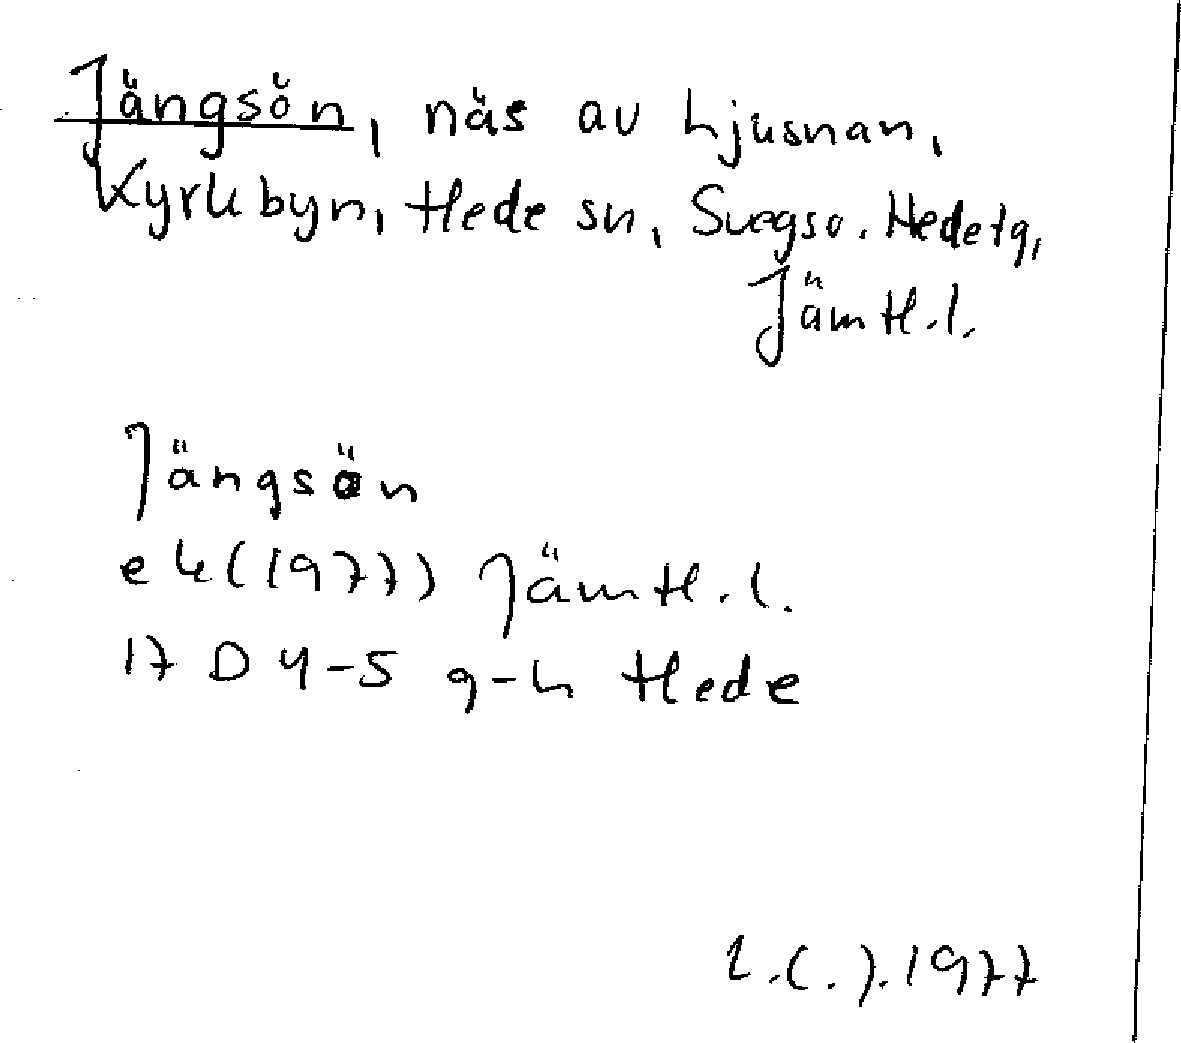 Jängsön, näs av Ljusnan,
Kyrkbyn, Hede sn, Svegs o. Hede tg,
Jämtl.l.
Jängsön
ek (1977) Jämtl.l.
17 D 4-5 g-h Hede
1977